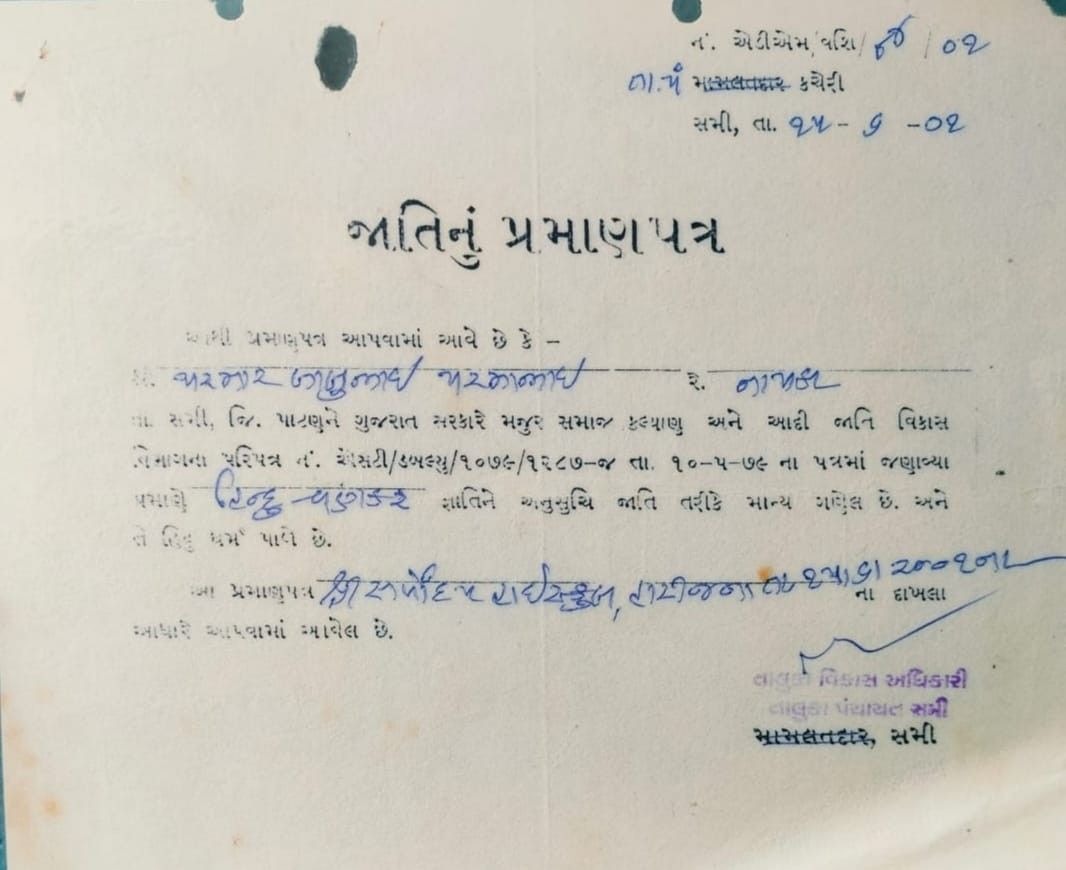 નં. એડીએમ/વશિ/ /૦૧
તા.પં મામલતદાર કચેરી
સમી, તા. ૨૫-૬-૦૧
જાતિનું પ્રમાણપત્ર
આથી પ્રમાણપત્ર આપવામાં આવે છે કે –
શ્રી. પરમાર બાબુભાઇ પરમાભાઇ રે. નાયકા
તા. સમી, જિ. પાટણને ગુજરાત સરકારે મજુર સમાજ કલ્યાણ અને આદી જાતિ વિકાસ
વિભાગના પરિપત્ર નં. એસટી/ડબલ્યુ/૧૦૭૯/૧૨૮૭-જ તા. ૧૦-૫-૭૯ ના પત્રમાં જણાવ્યા
પ્રમાણે હિન્દુ-વણકર જ્ઞાતિને અનુસુચિ જાતિ તરીકે માન્ય ગણેલ છે. અને
તે હિંદુ ધર્મ પાળે છે.
આ પ્રમાણપત્ર શ્રી સર્વોદય હાઇસ્કુલ, હારીજના તા. ૨૦૦૧ના ના દાખલા
આધારે આપવામાં આવેલ છે.
તાલુકા વિકાસ અધિકારી
તાલુકા પંચાયત સમી
મામલતદાર, સમી